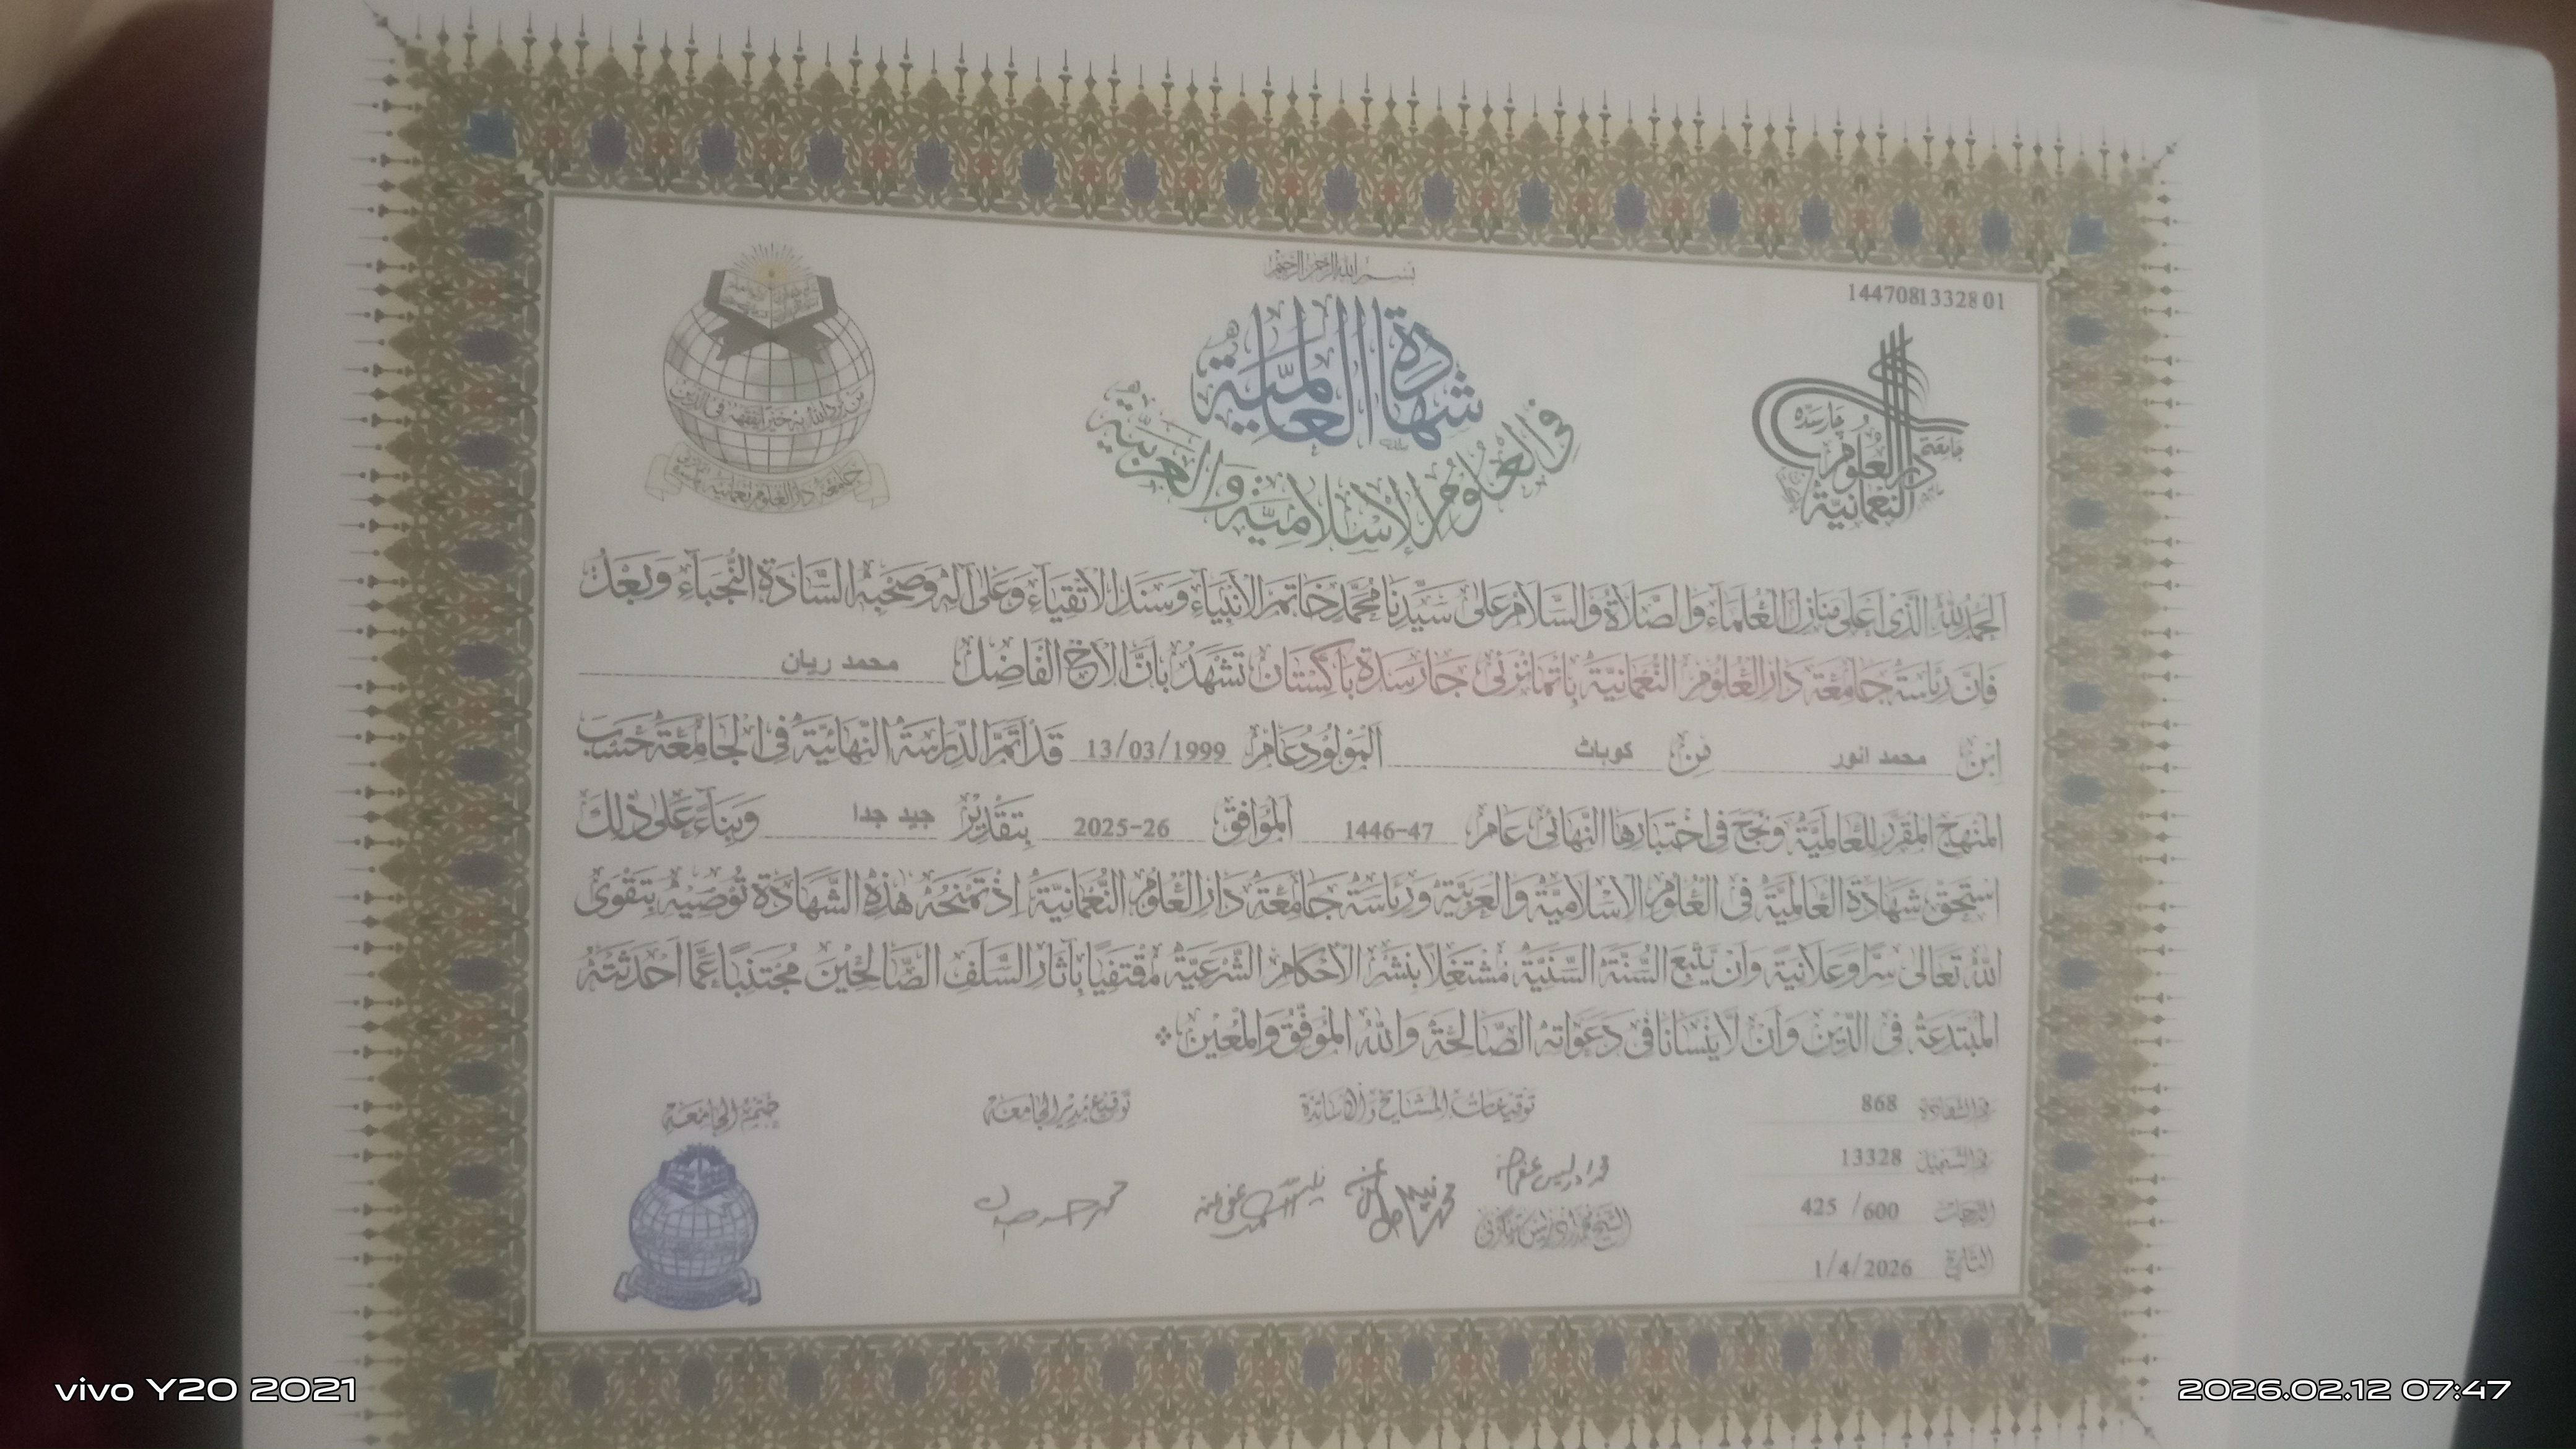 بسم الله الرحمن الرحيم
14470813328 01
شهادة العالمية
في العلوم الإسلامية والعربية
من يرد الله به خيرا يفقهه في الدين
جامعة دار العلوم نعمانية
جامعة دار العلوم النعمانية چارسده
الحمد لله الذي اعلى منازل العلماء والصلاة والسلام على سيدنا محمد خاتم الأنبياء وسند الأتقياء وعلى آله وصحبه السادة النجباء وبعد
فان رئاسة جامعة دار العلوم النعمانية باتمانزئى جارسدة باكستان تشهد بان الأخ الفاضل محمد ريان
ابن محمد انور من كوہاٹ المولود عام 13/03/1999 قد أتم الدراسة النهائية في الجامعة حسب
المنهج المقرر للعالمية ونجح في اختبارها النهائي عام 1446-47 الموافق 2025-26 بتقدير جيد جدا وبناء على ذلك
استحق شهادة العالمية في العلوم الاسلامية والعربية ورئاسة جامعة دار العلوم النعمانية إذ تمنحه هذه الشهادة توصيه بتقوى
الله تعالى سرا وعلانية وان يتبع السنة السنية مشتغلا بنشر الأحكام الشرعية مقتفيا بآثار السلف الصالحين مجتنبا عما احدثته
المبتدعة في الدين وان لا ينسانا في دعواته الصالحة والله الموفق والمعين
رقم الشهادة 868
رقم التسجيل 13328
الدرجات 425 /600
التاريخ 1/4/2026
توقيعات المشايخ والأساتذة
توقيع مدير الجامعة
ختم الجامعة
محمد ادريس عفي عنه
vivo Y20 2021
2026.02.12 07:47